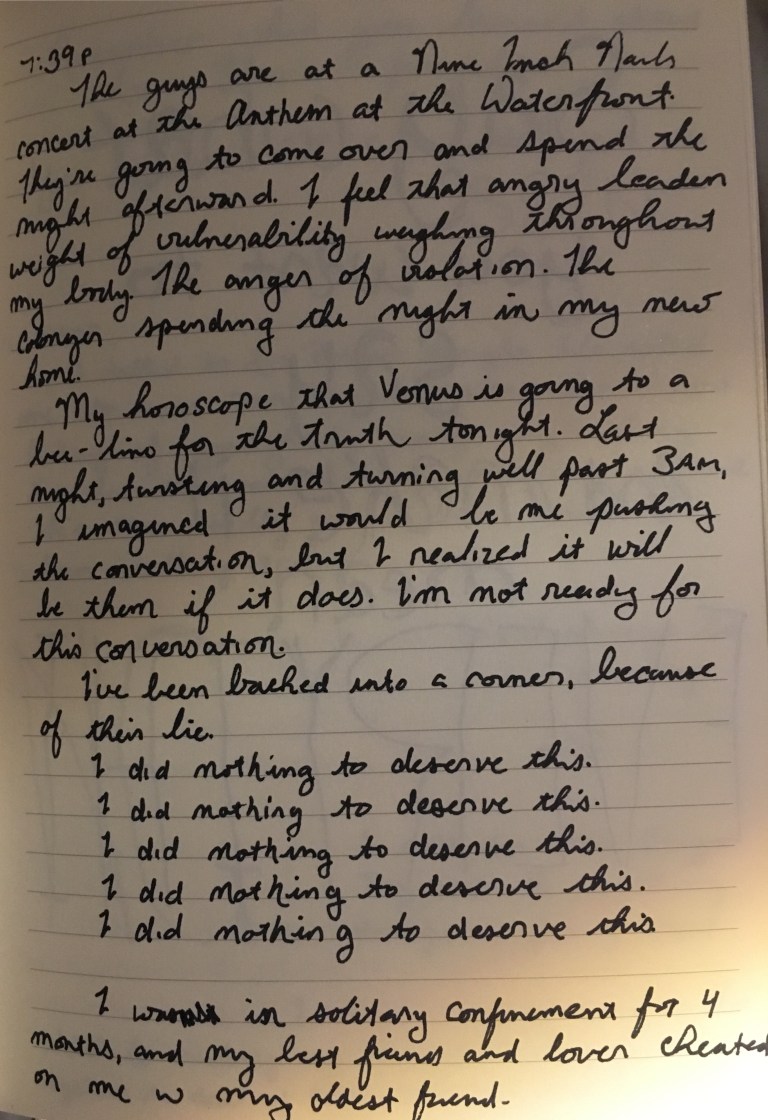 7:39p
The guys are at a Nine Inch Nails
concert at the Anthem at the Waterfront.
They're going to come over and spend the
night afterward. I feel that angry leaden
weight of vulnerability weighing throughout
my body. The anger of violation. The
danger spending the night in my new
home.
My horoscope that Venus is going to a
bee-line for the truth tonight. Last
night, twisting and turning well past 3AM,
I imagined it would be me pushing
the conversation, but I realized it will
be them if it does. I'm not ready for
this conversation.
I've been backed into a corner, because
of their lie.
I did nothing to deserve this.
I did nothing to deserve this.
I did nothing to deserve this.
I did nothing to deserve this.
I did nothing to deserve this
I in solitary confinement for 4
months, and my best friend and lover cheated
on me w my oldest friend.